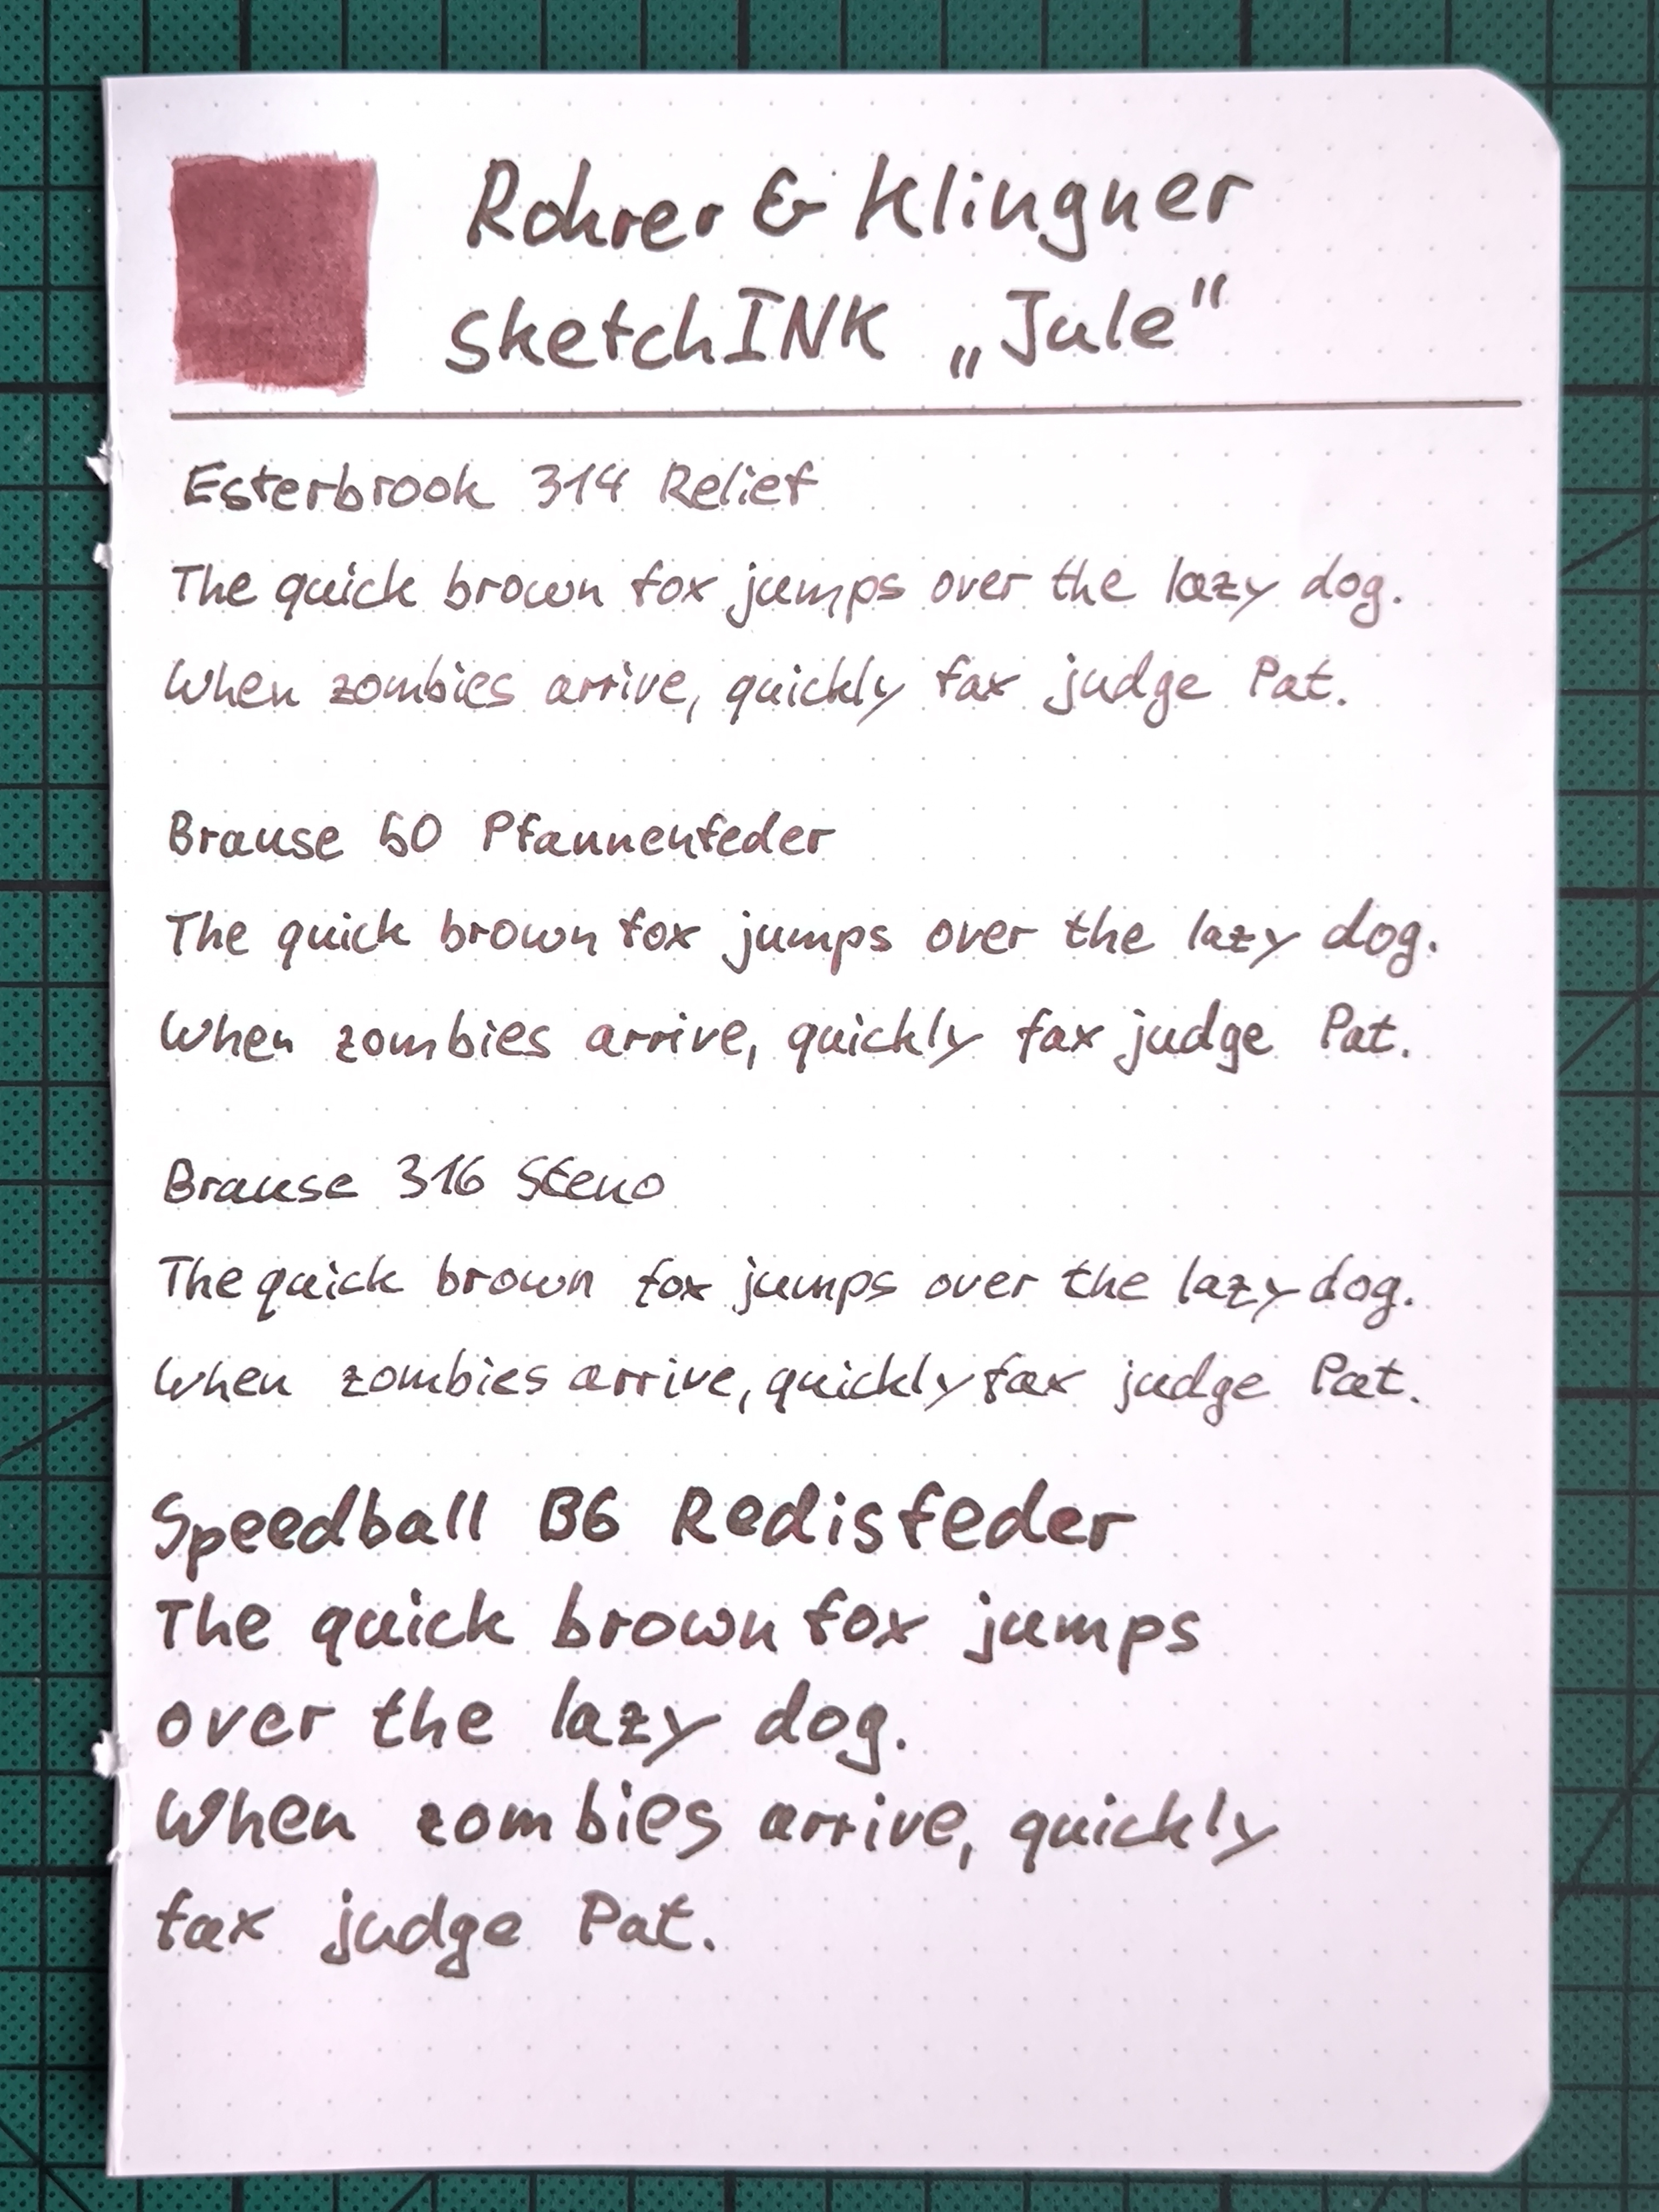 Rohrer & Klingner
SketchINK „Jule“
Esterbrook 314 Relief
The quick brown fox jumps over the lazy dog.
When zombies arrive, quickly fax judge Pat.
Brause 50 Pfannenfeder
The quick brown fox jumps over the lazy dog.
When zombies arrive, quickly fax judge Pat.
Brause 316 Steno
The quick brown fox jumps over the lazy dog.
When zombies arrive, quickly fax judge Pat.
Speedball B6 Redisfeder
The quick brown fox jumps
over the lazy dog.
When zombies arrive, quickly
fax judge Pat.